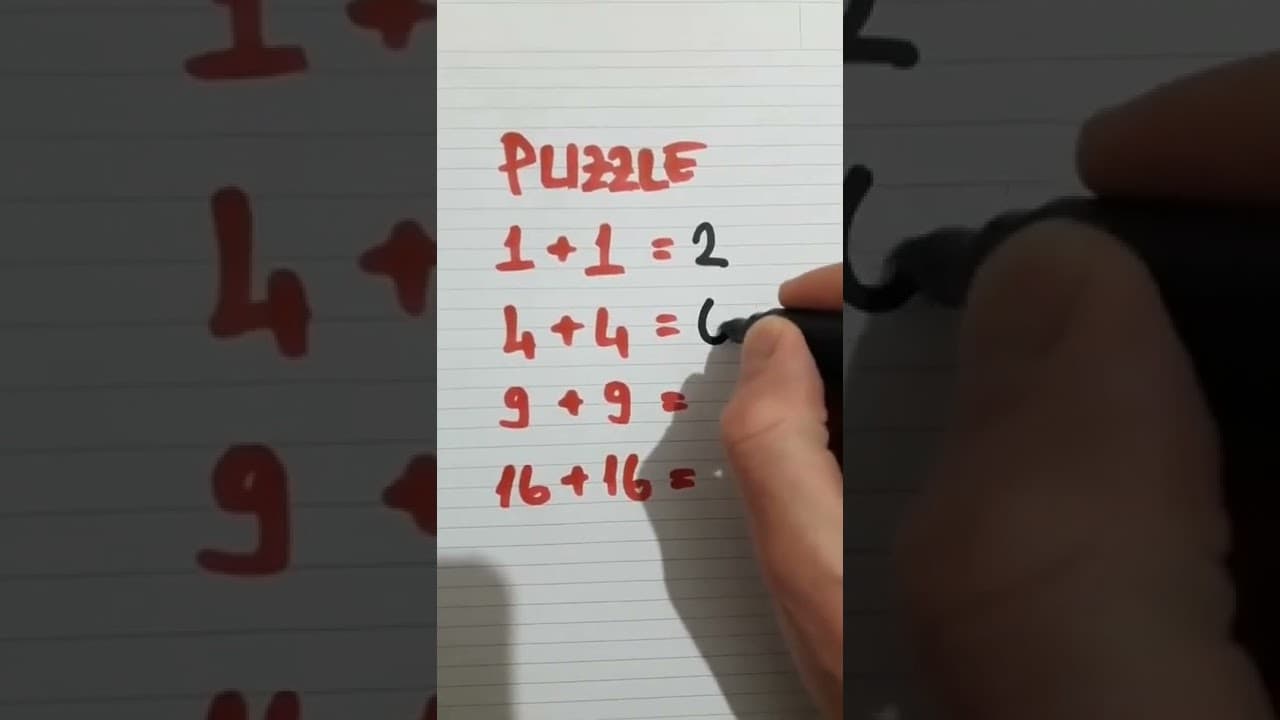 PUZZLE
1 + 1 = 2
4 + 4 =
9 + 9 =
16 + 16 =